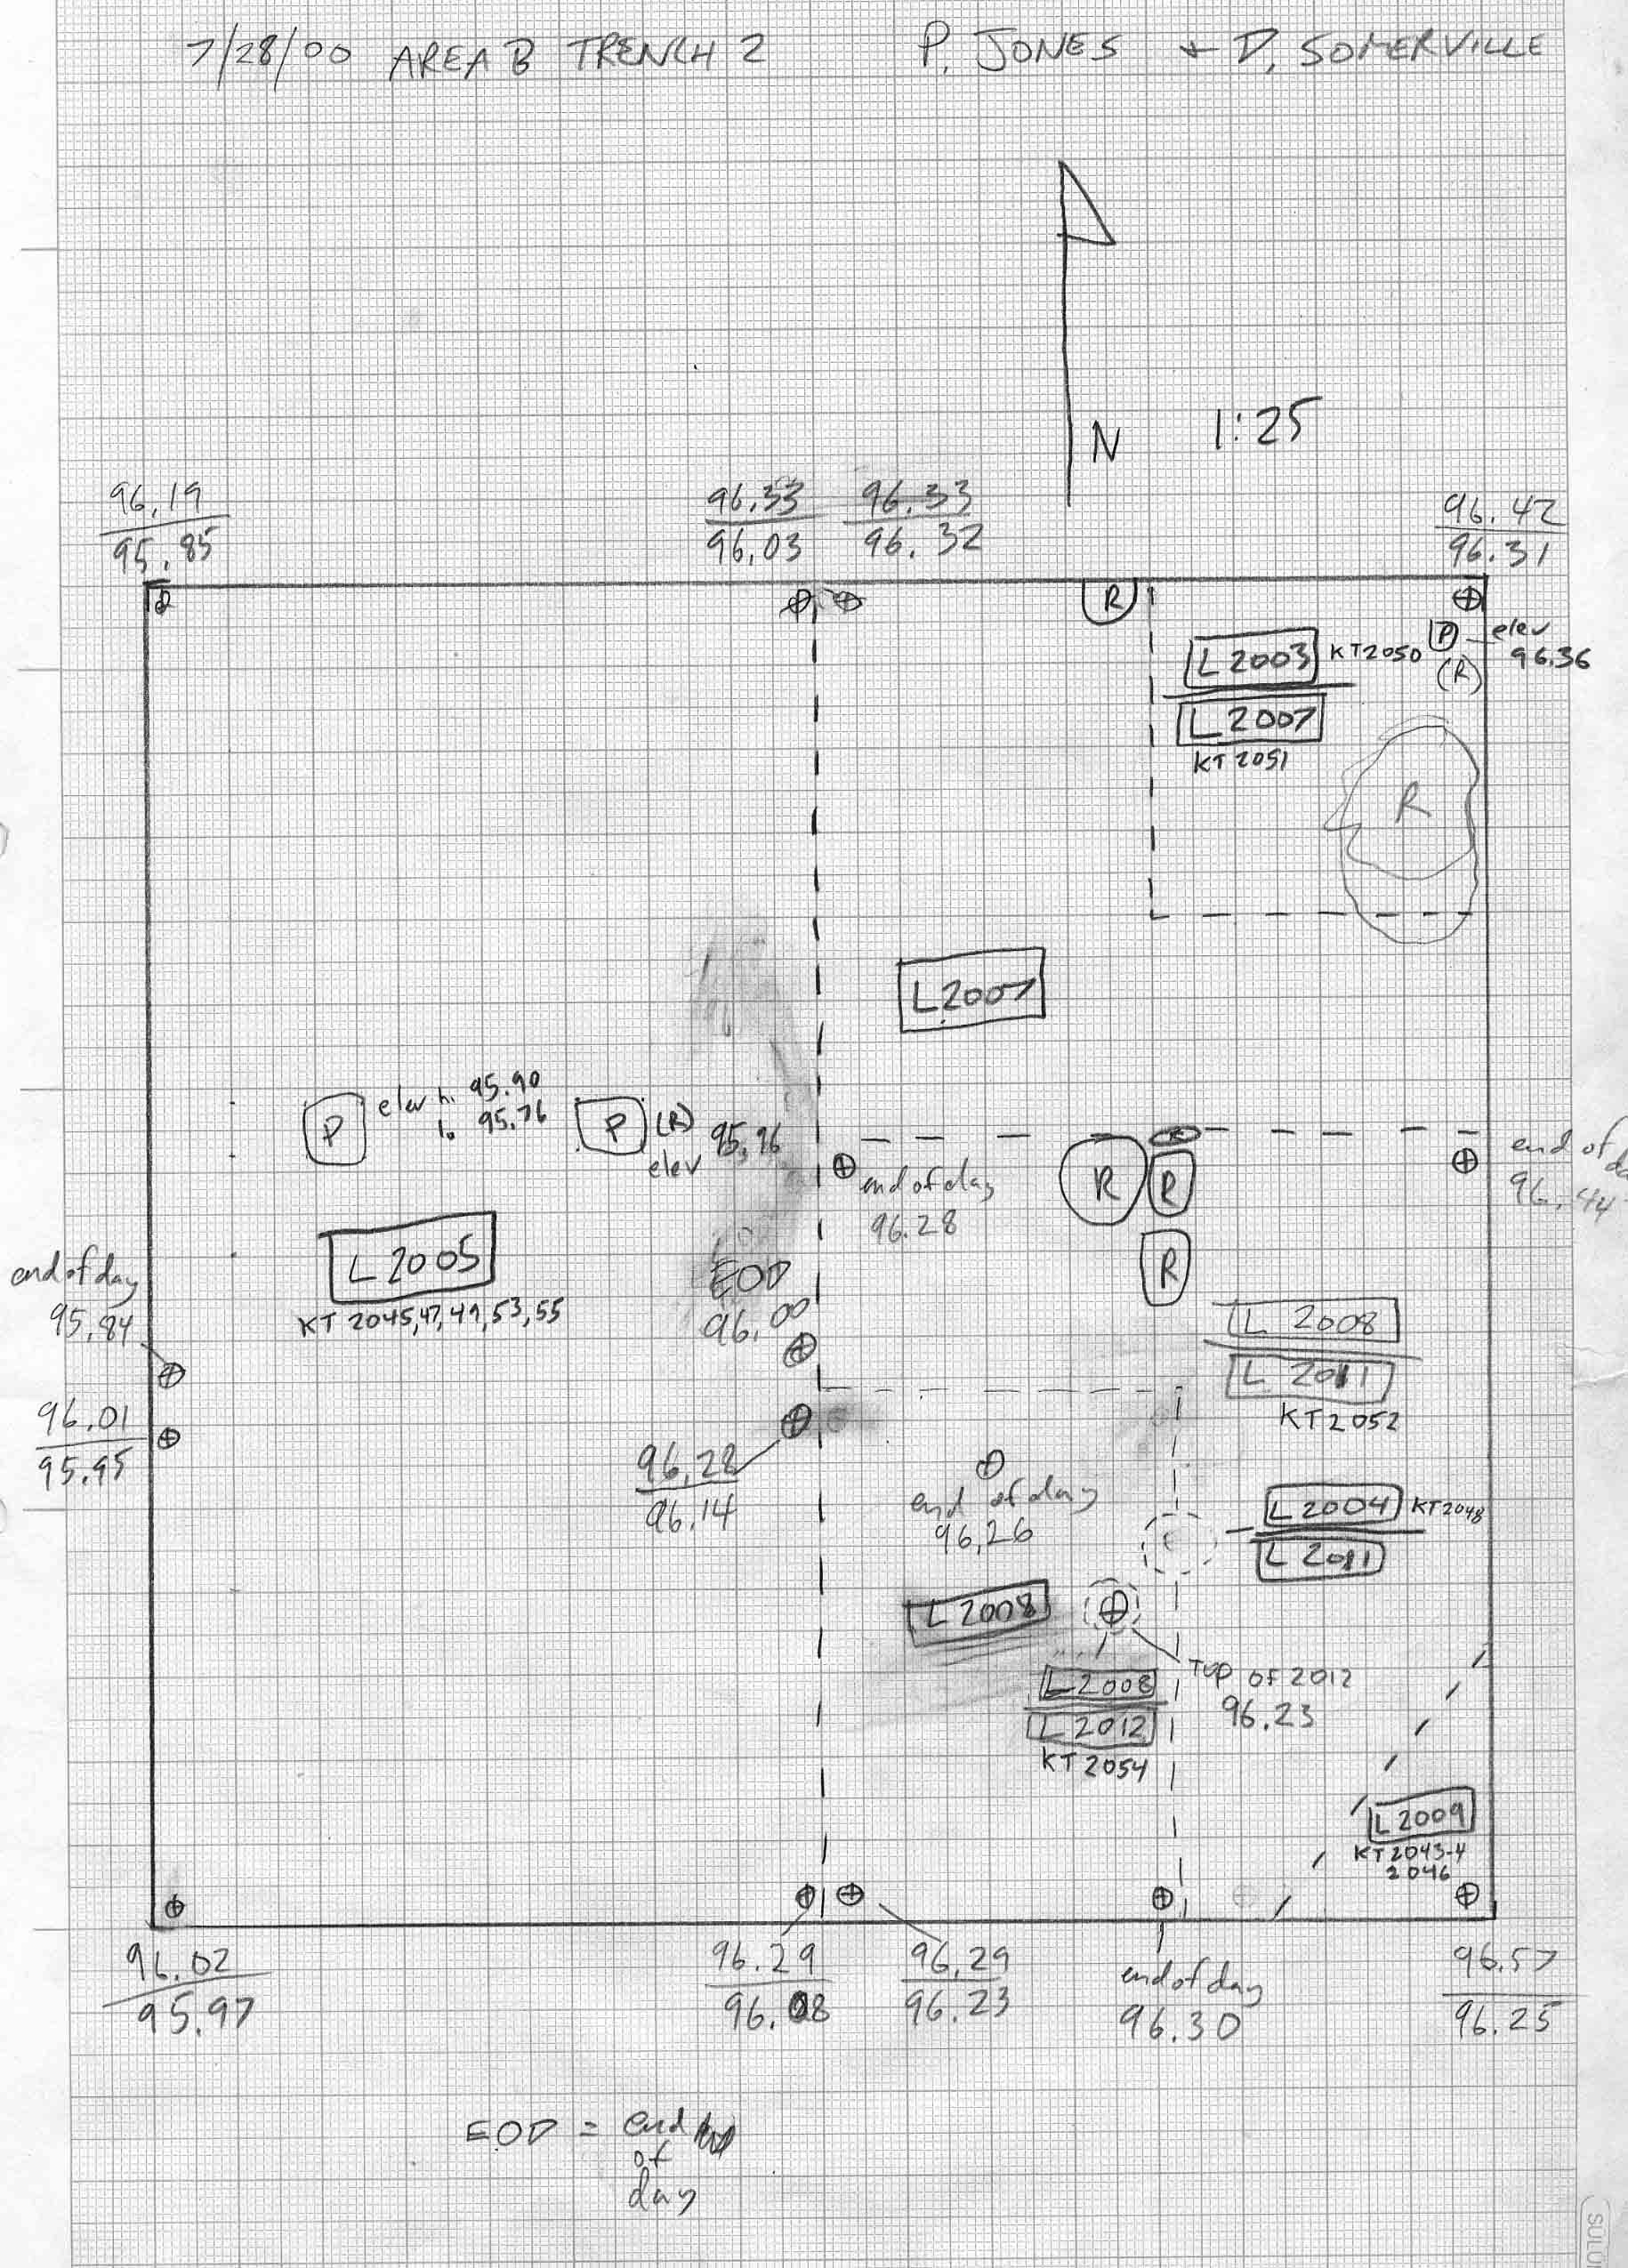 7/28/00 AREA B TRENCH 2 P. JONES + D. SOMERVILLE
N 1:25
96.19
95.85
96.33
96.03
96.33
96.32
96.42
96.31
R
L 2003 KT2050
L 2007
KT 2051
P elev
96.36
(R)
R
L2007
P elev h. 95.90
lo 95.76
P (R)
elev 95.96
end of day
96.28
R R
R
R
end of
96.44
L 2005
KT 2045,47,49,53,55
EOD
96.00
end of day
95.84
96.01
95.95
L 2008
L 2011
KT2052
96.28
96.14
end of day
96.26
L2004 KT2048
L 2011
L 2008
L2008
L2012
KT 2054
TOP OF 2012
96.23
L2009
KT 2043-4
2046
96.02
95.97
96.29
96.08
96.29
96.23
end of day
96.30
96.57
96.25
EOD = end
of
day